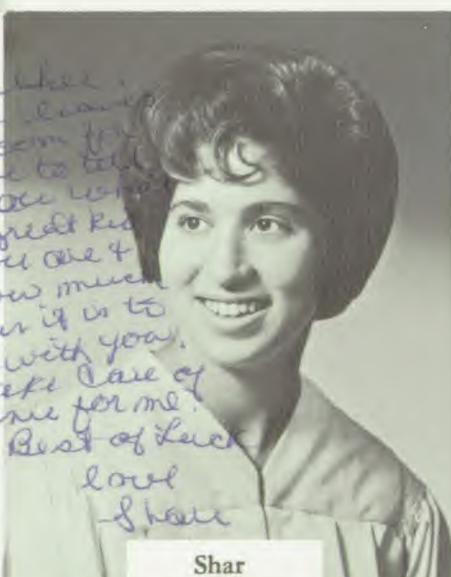 to tell
you what
great kid
you are &
how much
it is to
with you.
Take Care of
me for me!
Best of Luck
love
Shari
Shar